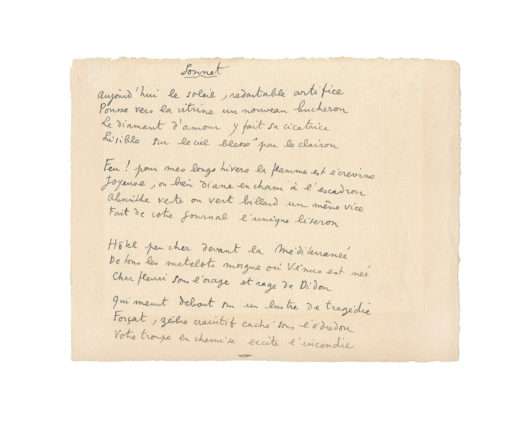 Sonnet
Aujourd'hui le soleil, redoutable artifice
Pousse vers la vitrine un nouveau bucheron
Le diamant d'amour y fait sa cicatrice
Lisible sur le ciel blessé par le clairon
Feu! pour mes longs hivers la flamme est
Joyeuse, ou bien Diane en cham à l'escadron
Absinthe verte ou vert billard un même vice
Fait de cote journal l'unique liseron
Hôtel peu cher devant la Méditerranée
De tous les matelots morgue où Vénus est née
Cher fleuri sous l'orage et rage de Didon
Qui meurt debout sur un lustre de tragédie
Forçat, zèbre craintif caché sous l'édredon
Votre troupe en chemise excite l'incendie